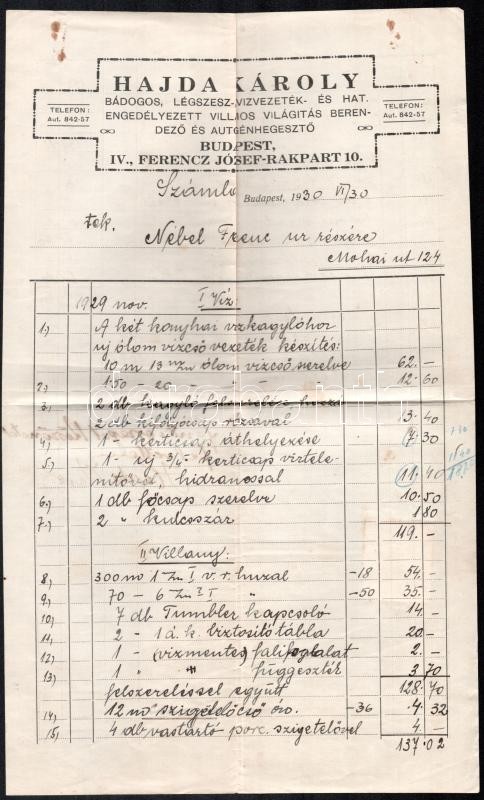 HAJDA KÁROLY
BÁDOGOS, LÉGSZESZ-, VIZVEZETÉK- ÉS HAT.
ENGEDÉLYEZETT VILLAMOS VILÁGITÁS BEREN-
DEZŐ ÉS AUTGÉNHEGESZTŐ
BUDAPEST,
IV., FERENCZ JÓZSEF-RAKPART 10.
TELEFON:
Aut. 842-57
TELEFON:
Aut. 842-57
Számla Budapest, 1930 VI/30
tek. Nébel Ferenc ur részére
Mohai ut 124
1929 nov. I Viz.
1.) A két konyhai vizkagylóhoz
uj ólom vizcső vezeték készítés:
10 m 13 ólom vizcső szerelve 62.–
2.) 150 – 20 – – – 12.60
3.) 2 db kagyló
2 db kifolyócsap rózsával 13.40
4.) 1 – kerticsap áthelyezése 7.30
5.) 1 – uj 3/4 – kerticsap
hidranossal 11.40
6.) 1 db főcsap szerelve 10.50
7.) 2 " kulcsszár 180
119.–
II Villany:
8.) 300 m 1 I v. r. huzal –18 54.–
9.) 70 – 6 I " –50 35.–
10.) 7 db Tumbler kapcsoló 14.–
11.) 2 – 1 á. k. biztosító tábla 20.–
12.) 1 – (vizmentes) falifoglalat 2.–
13.) 1 " függeszték 3 70
felszereléssel együtt 128.70
14.) 12 m szigetelőcső –36 4.32
15.) 4 db vastartó porc. szigetelővel 4 –
137.02